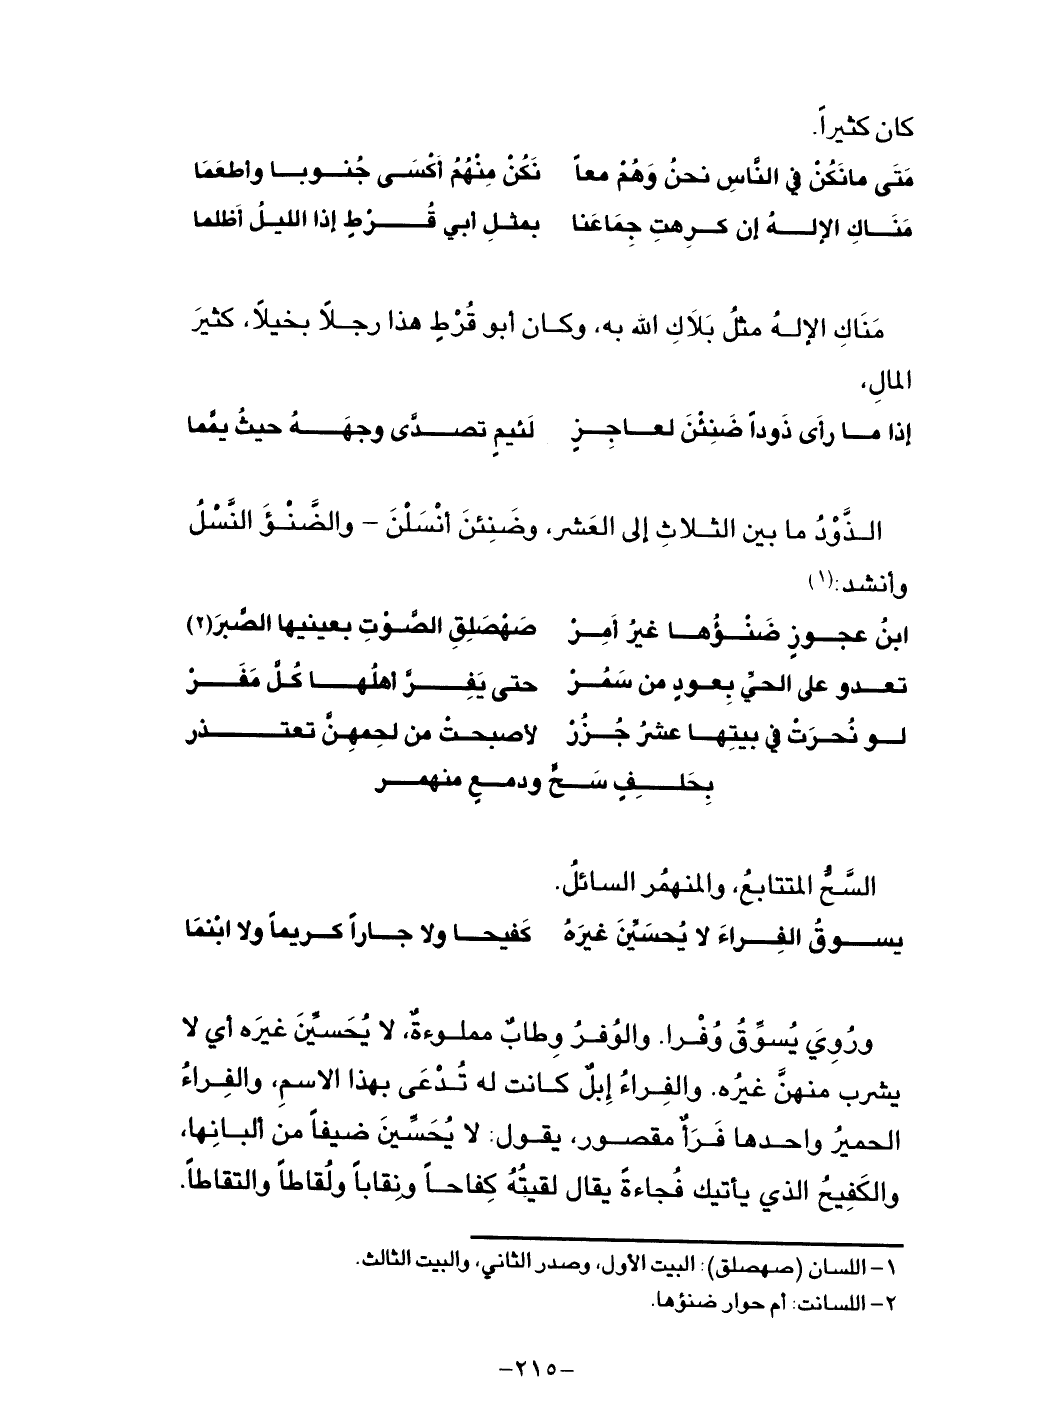 كان كثيراً.
مَتَى مانَكُنْ في النَّاسِ نحنُ وَهُمْ معاً نَكُنْ مِنْهُمُ أكْسَى جُنوبا وأطعَمَا
مَنَاكِ الإلهُ إن كرهتِ جِمَاعَنا بمثلِ أبي قُرْطٍ إذا الليلُ أظلما
مَنَاكِ الإلهُ مثلُ بَلَاكِ الله به، وكان أبو قُرْطٍ هذا رجلاً بخيلاً، كثيرَ
المالِ،
إذا ما رأى ذَوداً ضَنِئْنَ لعاجِزٍ لَئيمٍ تصدَّى وجهَهُ حيثُ يمَّما
الذَّوْدُ ما بين الثلاثِ إلى العَشر، وضَنِئنَ أنْسَلْنَ – والضَّنْؤَ النَّسْلُ
وأنشد:(١)
ابنُ عجوزٍ ضَنْؤُها غيرُ أمِرْ صَهْصَلِقِ الصَّوْتِ بعينيها الصَّبرَ(٢)
تعدو على الحيِّ بِعودٍ من سَمُرْ حتى يَفِرَّ أهلُها كُلَّ مَفَرْ
لو نُحرَتْ في بيتِها عشرُ جُزُرْ لأصبحتْ من لحمِهِنَّ تعتذر
بِحَلفٍ سَحٍّ ودمعٍ منهمر
السَّحُّ المتتابعُ، والمنهمُر السائلُ.
يسوقُ الفِراءَ لا يُحسَيِّنَ غيرَهُ كَفيحا ولا جاراً كريماً ولا ابْنمَا
ورُوِيَ يُسوِّقُ وُفْرا. والوُفرُ وِطابٌ مملوءةٌ، لا يُحَسيِّنَ غيرَه أي لا
يشرب منهنَّ غيرُه. والفِراءُ إبلٌ كانت له تُدْعَى بهذا الاسمِ، والفِراءُ
الحميرُ واحدها فَرَأٌ مقصور، يقول: لا يُحَسِّينَ ضيفاً من ألبانِها،
والكَفِيحُ الذي يأتيك فُجاءةً يقال لقيتُهُ كِفاحاً ونِقاباً ولُقاطاً والتقاطاً.
١– اللسان (صهصلق): البيت الأول، وصدر الثاني، والبيت الثالث.
٢– اللسانت: أم حوار ضنؤها.
–٢١٥–